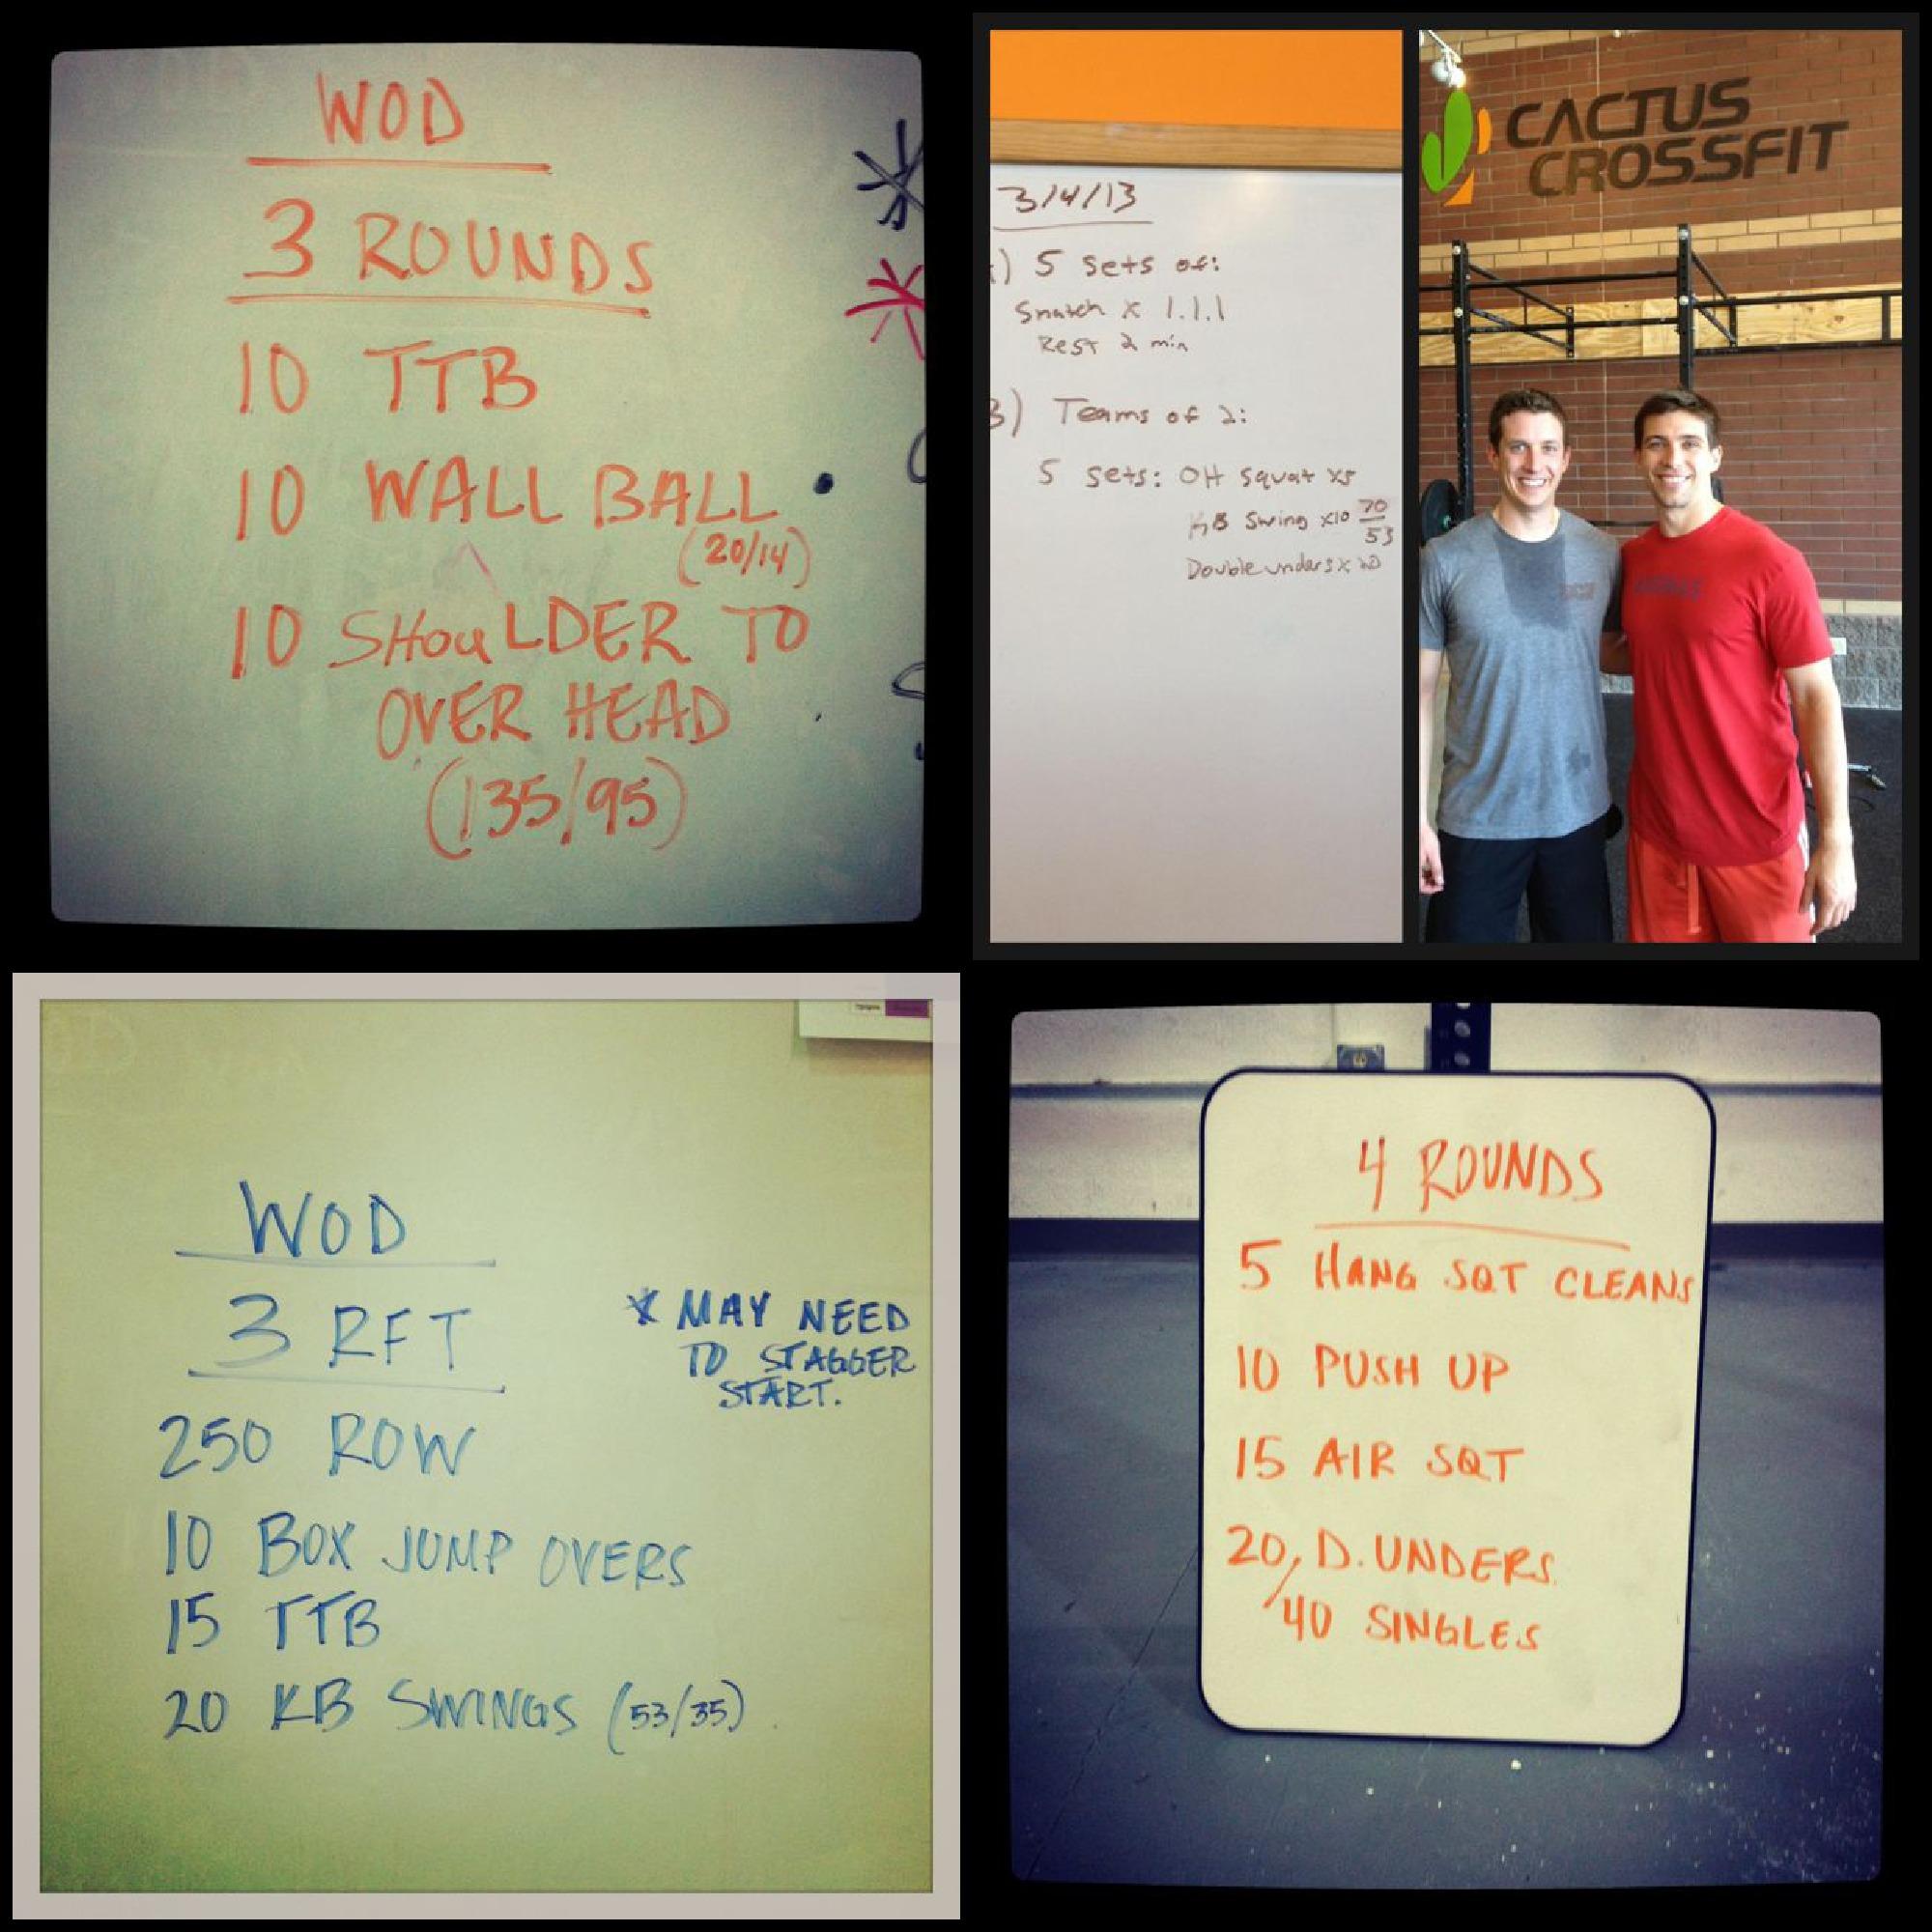 WOD
3 ROUNDS
10 TTB
10 WALL BALL
(20/14)
10 SHOULDER TO
OVER HEAD
(135/95)
3/4/13
) 5 sets of:
Snatch x 1.1.1
Rest 2 min
B) Teams of 2:
5 sets: OH squat x5
KB Swing x10 70/53
Double unders x 20
CACTUS
CROSSFIT
WOD
3 RFT
* MAY NEED
TO STAGGER
START.
250 ROW
10 BOX JUMP OVERS
15 TTB
20 KB SWINGS (53/35)
4 ROUNDS
5 HANG SQT CLEANS
10 PUSH UP
15 AIR SQT
20/ D. UNDERS
40 SINGLES